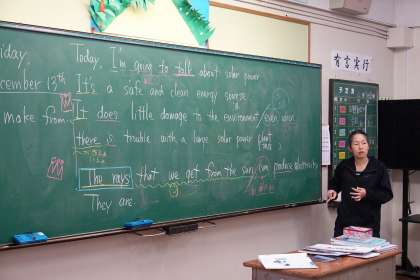 Friday,
December 13th
make from
Today, I'm going to talk about solar power
It's a safe and clean energy source
It does little damage to the environment even when
there is trouble with a large solar power plant
The rays that we get from the sun can produce electricity
They are
有言実行